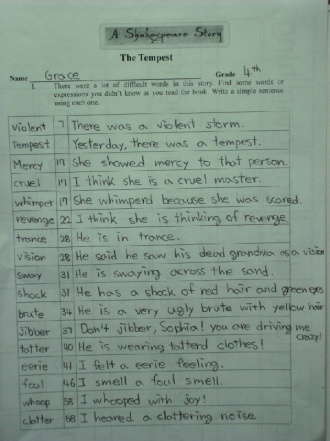 A Shakespeare Story
The Tempest
Name Grace Grade 4th
1. There were a lot of difficult words in this story. Find some words or
expressions you didn't know as you read the book. Write a simple sentence
using each one.
violent 7 There was a violent storm.
tempest Yesterday, there was a tempest.
Mercy 17 She showed mercy to that person.
cruel 17 I think she is a cruel master.
whimper 17 She whimperd because she was scared.
revenge 22 I think she is thinking of revenge
trance 28 He is in trance.
vision 28 He said he saw his dead grandma as a vision
sway 31 He is swaying across the sand.
shock 31 He has a shock of red hair and green eyes
brute 34 He is a very ugly brute with yellow hair
jibber 37 Don't jibber, Sophia! you are driving me
crazy!
totter 40 He is wearing totterd clothes!
eerie 41 I felt a eerie feeling.
foul 46 I smell a foul smell.
whoop 58 I whooped with joy!
clatter 58 I heared a clattering noise